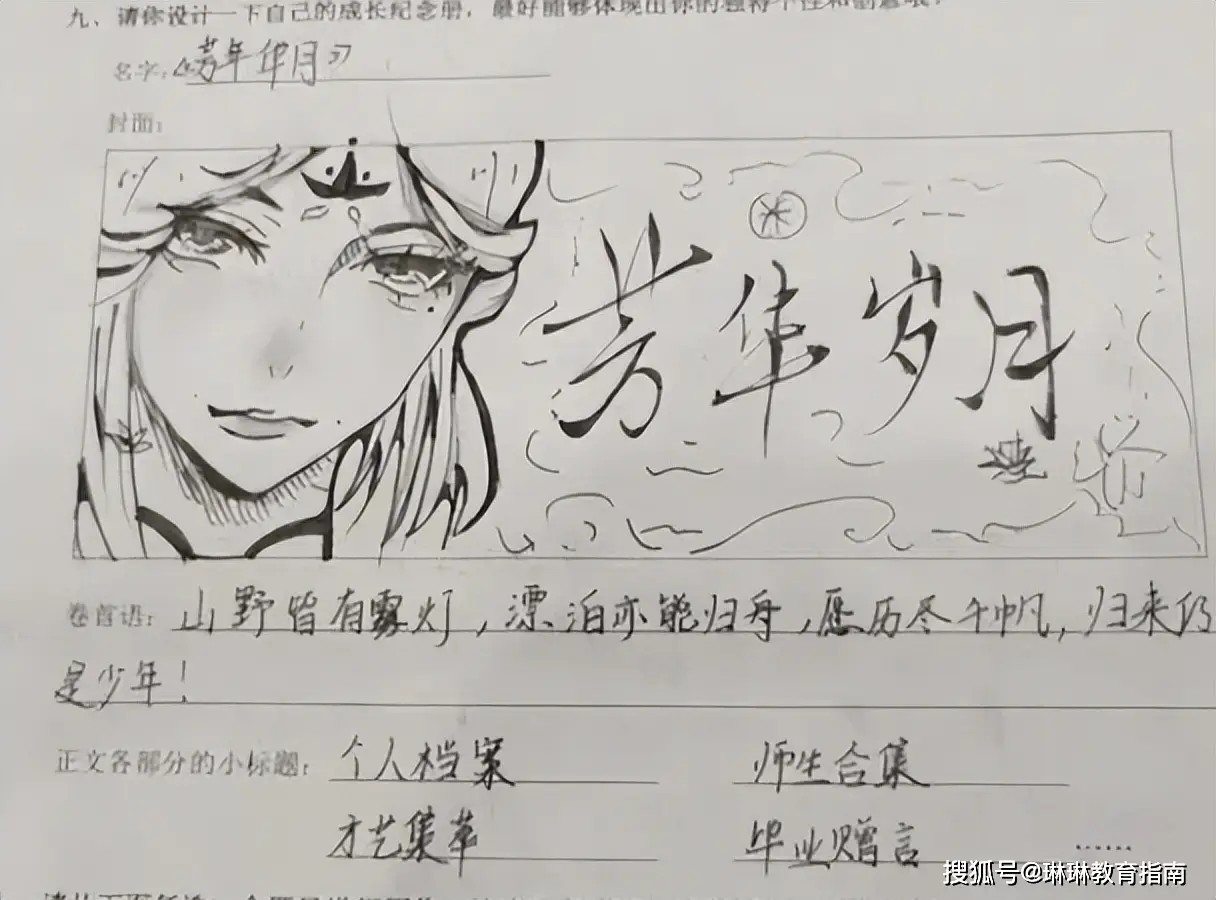 九、请你设计一下自己的成长纪念册，最好能够体现出你的独特个性和创意哦！
名字：《芳年华月》
封面：
芳华岁月
卷首语：山野皆有雾灯，漂泊亦能归舟，愿历尽千帆，归来仍
是少年！
正文各部分的小标题：个人档案 师生合集
才艺集萃 毕业赠言 ……
搜狐号@琳琳教育指南